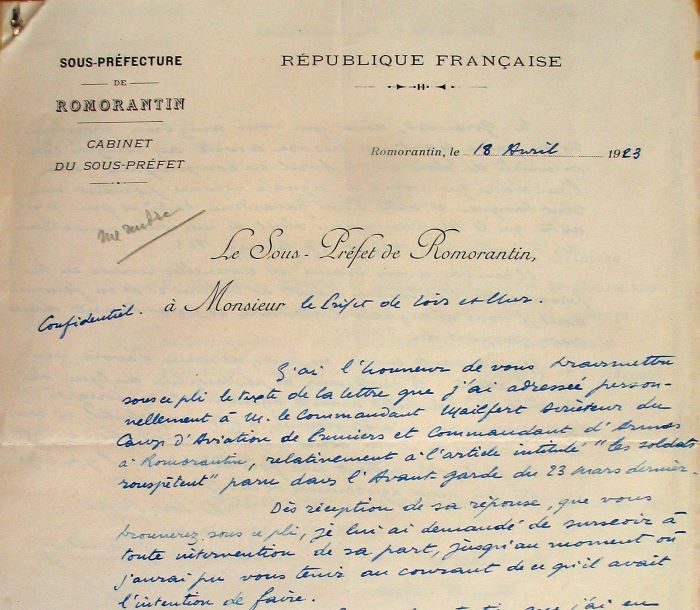 SOUS-PRÉFECTURE
DE
ROMORANTIN
CABINET
DU SOUS-PRÉFET
RÉPUBLIQUE FRANÇAISE
Romorantin, le 18 Avril 1923
me rendre
Le Sous-Préfet de Romorantin,
à Monsieur le Préfet de Loir et Cher.
Confidentiel.
J'ai l'honneur de vous transmettre
sous ce pli le texte de la lettre que j'ai adressée person-
nellement à M. le Commandant Mailfert Directeur du
Camp d'Aviation de Pruniers et Commandant d'Armes
à Romorantin, relativement à l'article intitulé "les soldats
rouspètent" paru dans l'Avant-garde du 23 mars dernier.
Dès réception de sa réponse, que vous
trouverez sous ce pli, je lui ai demandé de surseoir à
toute intervention de sa part, jusqu'au moment où
j'aurai pu vous tenir au courant de ce qu'il avait
l'intention de faire.
que j'ai eu